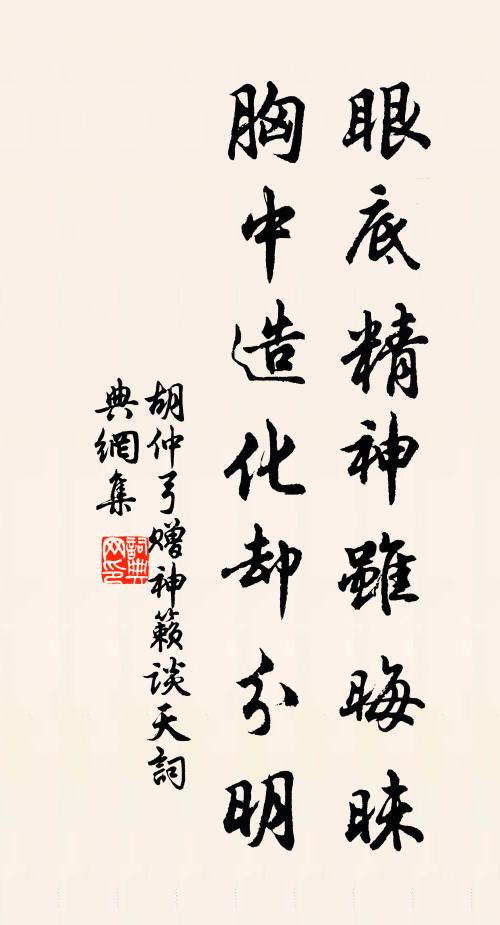 眼底精神雖晦昧
胸中造化却分明
胡仲弓赠神籁谈天詞
典網集
詞典网印